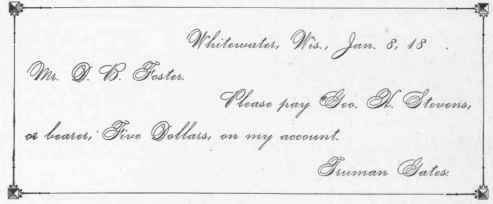 Whitewater, Wis., Jan. 8, 18 .
Mr. D. B. Foster.
Please pay Geo. H. Stevens,
or bearer, Five Dollars, on my account.
Truman Gates.